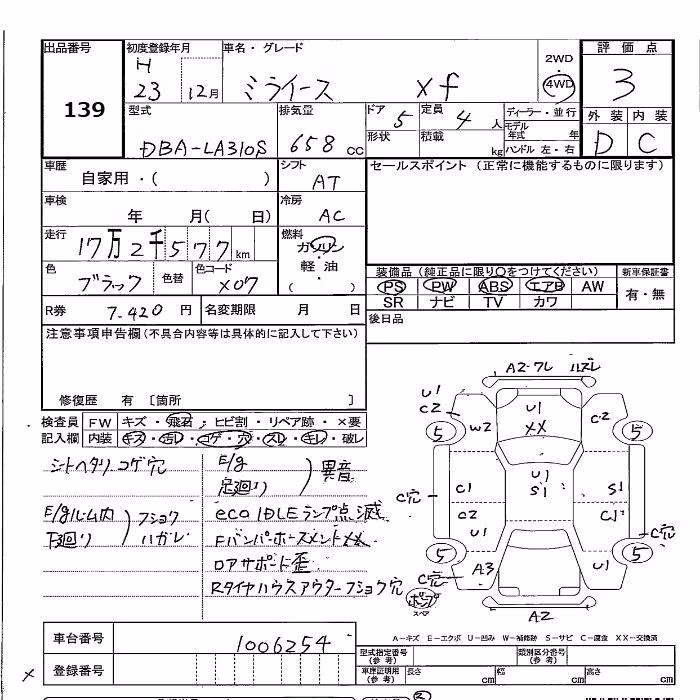 出品番号
139
初度登録年月
H
23 12月
車名・グレード
ミライース xf
2WD
4WD
評価点
3
型式
DBA-LA310S
排気量
658 cc
ドア 5
定員 4 人
形状
積載 kg
ディーラー・並行
モデル年式 年
ハンドル 左・右
外装 内装
D C
車歴
自家用・( )
シフト
AT
セールスポイント (正常に機能するものに限ります)
車検
年 月( 日)
冷房
AC
走行
17万2千577km
燃料
ガソリン
軽・油
( )
色
ブラック
色替
色コード
X07
装備品(純正品に限り○をつけてください)
新車保証書
PS PW ABS エアB AW
有・無
SR ナビ TV カワ
R券 7-420 円
名変期限 月 日
後日品
注意事項申告欄(不具合内容等は具体的に記入して下さい)
修復歴 有 〔箇所 〕
検査員記入欄
FW キズ・飛石・ヒビ割・リペア跡・×要
内装 キズ・汚レ・コゲ・穴・スレ・キレ・破レ
シートヘタリ コゲ穴
E/g
足廻り
異音
E/gルーム内
下廻り
フショク
ハガレ
eco IDLEランプ点滅
FバンパーホースメントXX
ロアサポート歪
Rタイヤハウスアウターフショク穴
A2・ワレ ハズレ
U1
C2
W2
U1
XX
C2
5
5
U1
S1
C1
S1
C穴
C2
C1
U1
C穴
5
5
C穴
A3
U1
ポンプ
スペア
A2
A-キズ E-エクボ U-凹み W-補修跡 S-サビ C-腐食 XX-交換済
車台番号
1006254
登録番号
型式指定番号
(参考)
類別区分番号
(参考)
車庫証明
(参考)
長さ cm
幅 cm
高さ cm